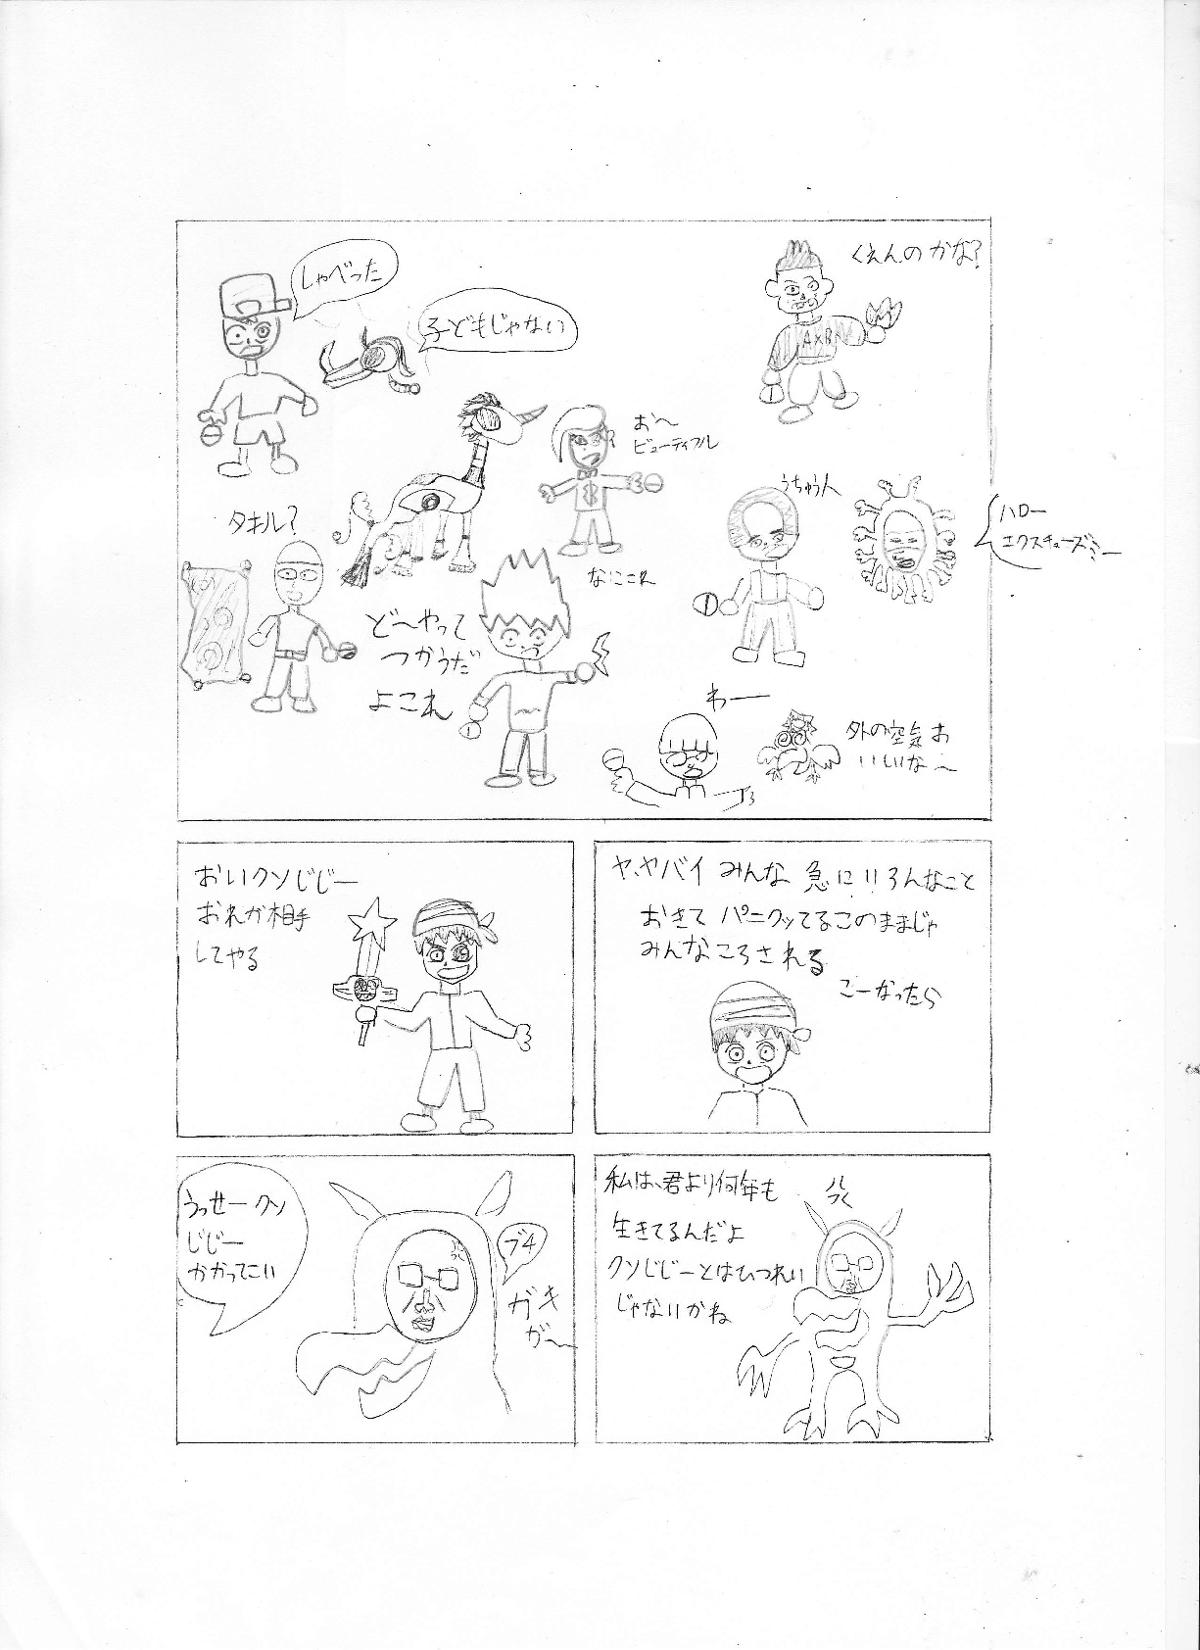 くえんのかな?
AXB
しゃべった
子どもじゃない
お〜
ビューティフル
うちゅう人
ハロー
エクスチューズミー
タオル?
なにこれ
ど〜やって
つかうだ
よこれ
わー
外の空気お
いしいな〜
ヤ、ヤバイ みんな 急にいろんなこと
おきて パニクッてるこのままじゃ
みんなころされる
こーなったら
おいクソじじー
おれが相手
してやる
私は、君より何年も
生きてるんだよ
クソじじーとはひつれい
じゃないかね
うっせークソ
じじー
かかってこい
ブチ
ガキ
が〜